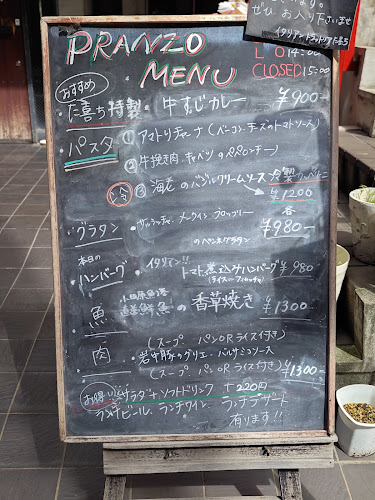 ぜひ お入り下さいませ
イタリアントラットリアた喜ち
L O 14:00
CLOSED 15:00
PRANZO
MENU
おすすめ
た喜ち特製・牛すじカレー ¥900-
・パスタ ① アマトリチャーナ(ベーコン、チーズのトマトソース)
② 牛挽肉、キャベツのペペロンチーノ
冷 ③ 海老のバジルクリームソース 冷製カッペリーニ
¥1200
各
¥980-
グラタン ・サルシッチャ、メークイン、ブロッコリー
のペンネグラタン
本日の
ハンバーグ ・イタリアン!! トマト煮込みハンバーグ ¥980
魚 小田原魚港
鮮魚の香草焼き ¥1300-
(スープ パンORライス付き)
肉 岩中豚のグリエ・バルサミコソース
(スープ パンORライス付き) ¥1300-
お得 サラダ+ソフトドリンク +220円
ランチビール、ランチワイン ランチデザート
有ります!!